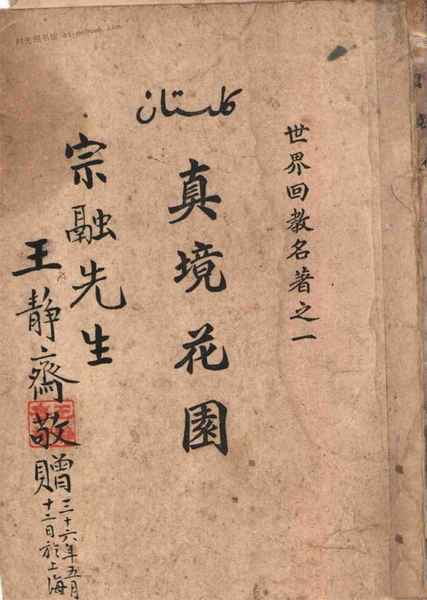 世界回教名著之一
كلستان
真境花園
宗融先生
王靜齋敬贈
三十六年五月
十二日於上海